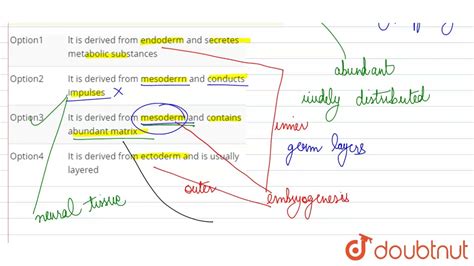 Option1 It is derived from endoderm and secretes
metabolic substances
Option2 It is derived from mesoderrn and conducts
impulses X
Option3 It is derived from mesoderm and contains
abundant matrix
Option4 It is derived from ectoderm and is usually
layered
abundant
widely distributed
inner
germ layers
outer
embryogenesis
neural tissue
doubtnut